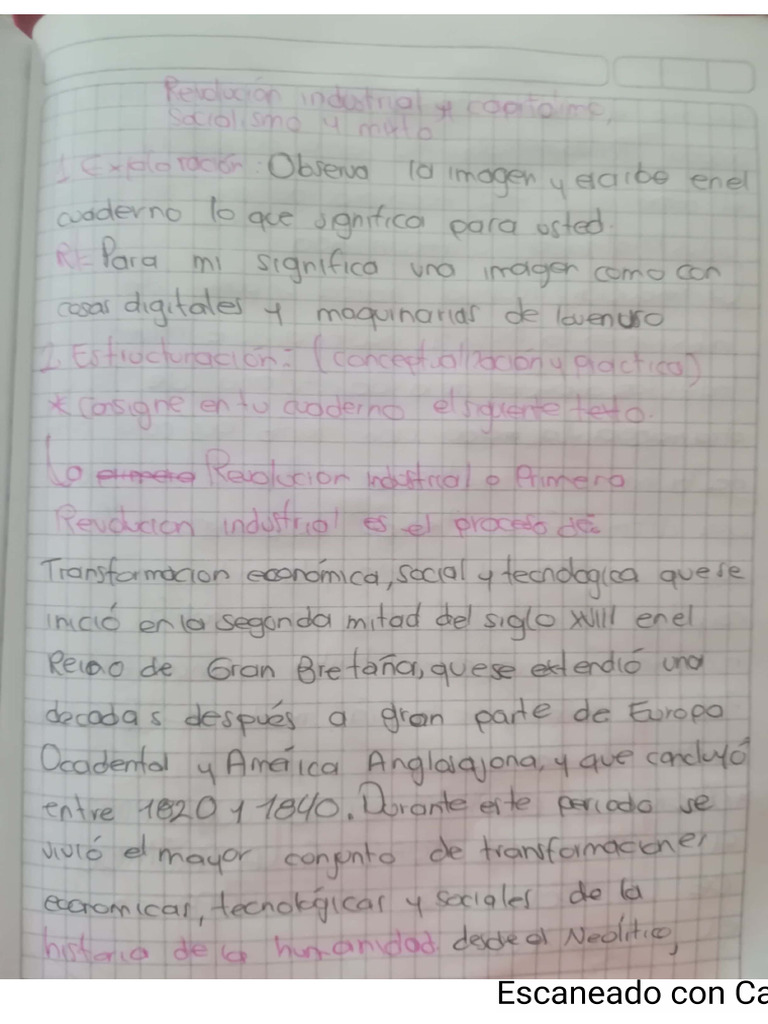 Revolución industrial y capitaimo,
Socialismo y mixto
1 Exploración: Observo la imagen y escribe en el
cuaderno lo que significa para usted.
R= Para mi significa una imagen como con
cosas digitales y maquinarias de
2 Estructuración: (conceptualización y practica)
* Cosigne en tu cuaderno el siguente texto.
La Revolucion industrial o Primera
Revolucion industrial es el proceso de
Transformacion económica, social y tecnologica que se
inició en la segonda mitad del siglo XVIII en el
Reino de Gran Bretaña, que se extendió una
decadas después a gran parte de Europa
Occidental y América Anglosajona, y que concluyó
entre 1820 y 1840. Durante este periodo se
vivió el mayor conjunto de transformaciones
economicas, tecnológicas y sociales de la
historia de la humanidad desde el Neolítico,
Escaneado con Ca